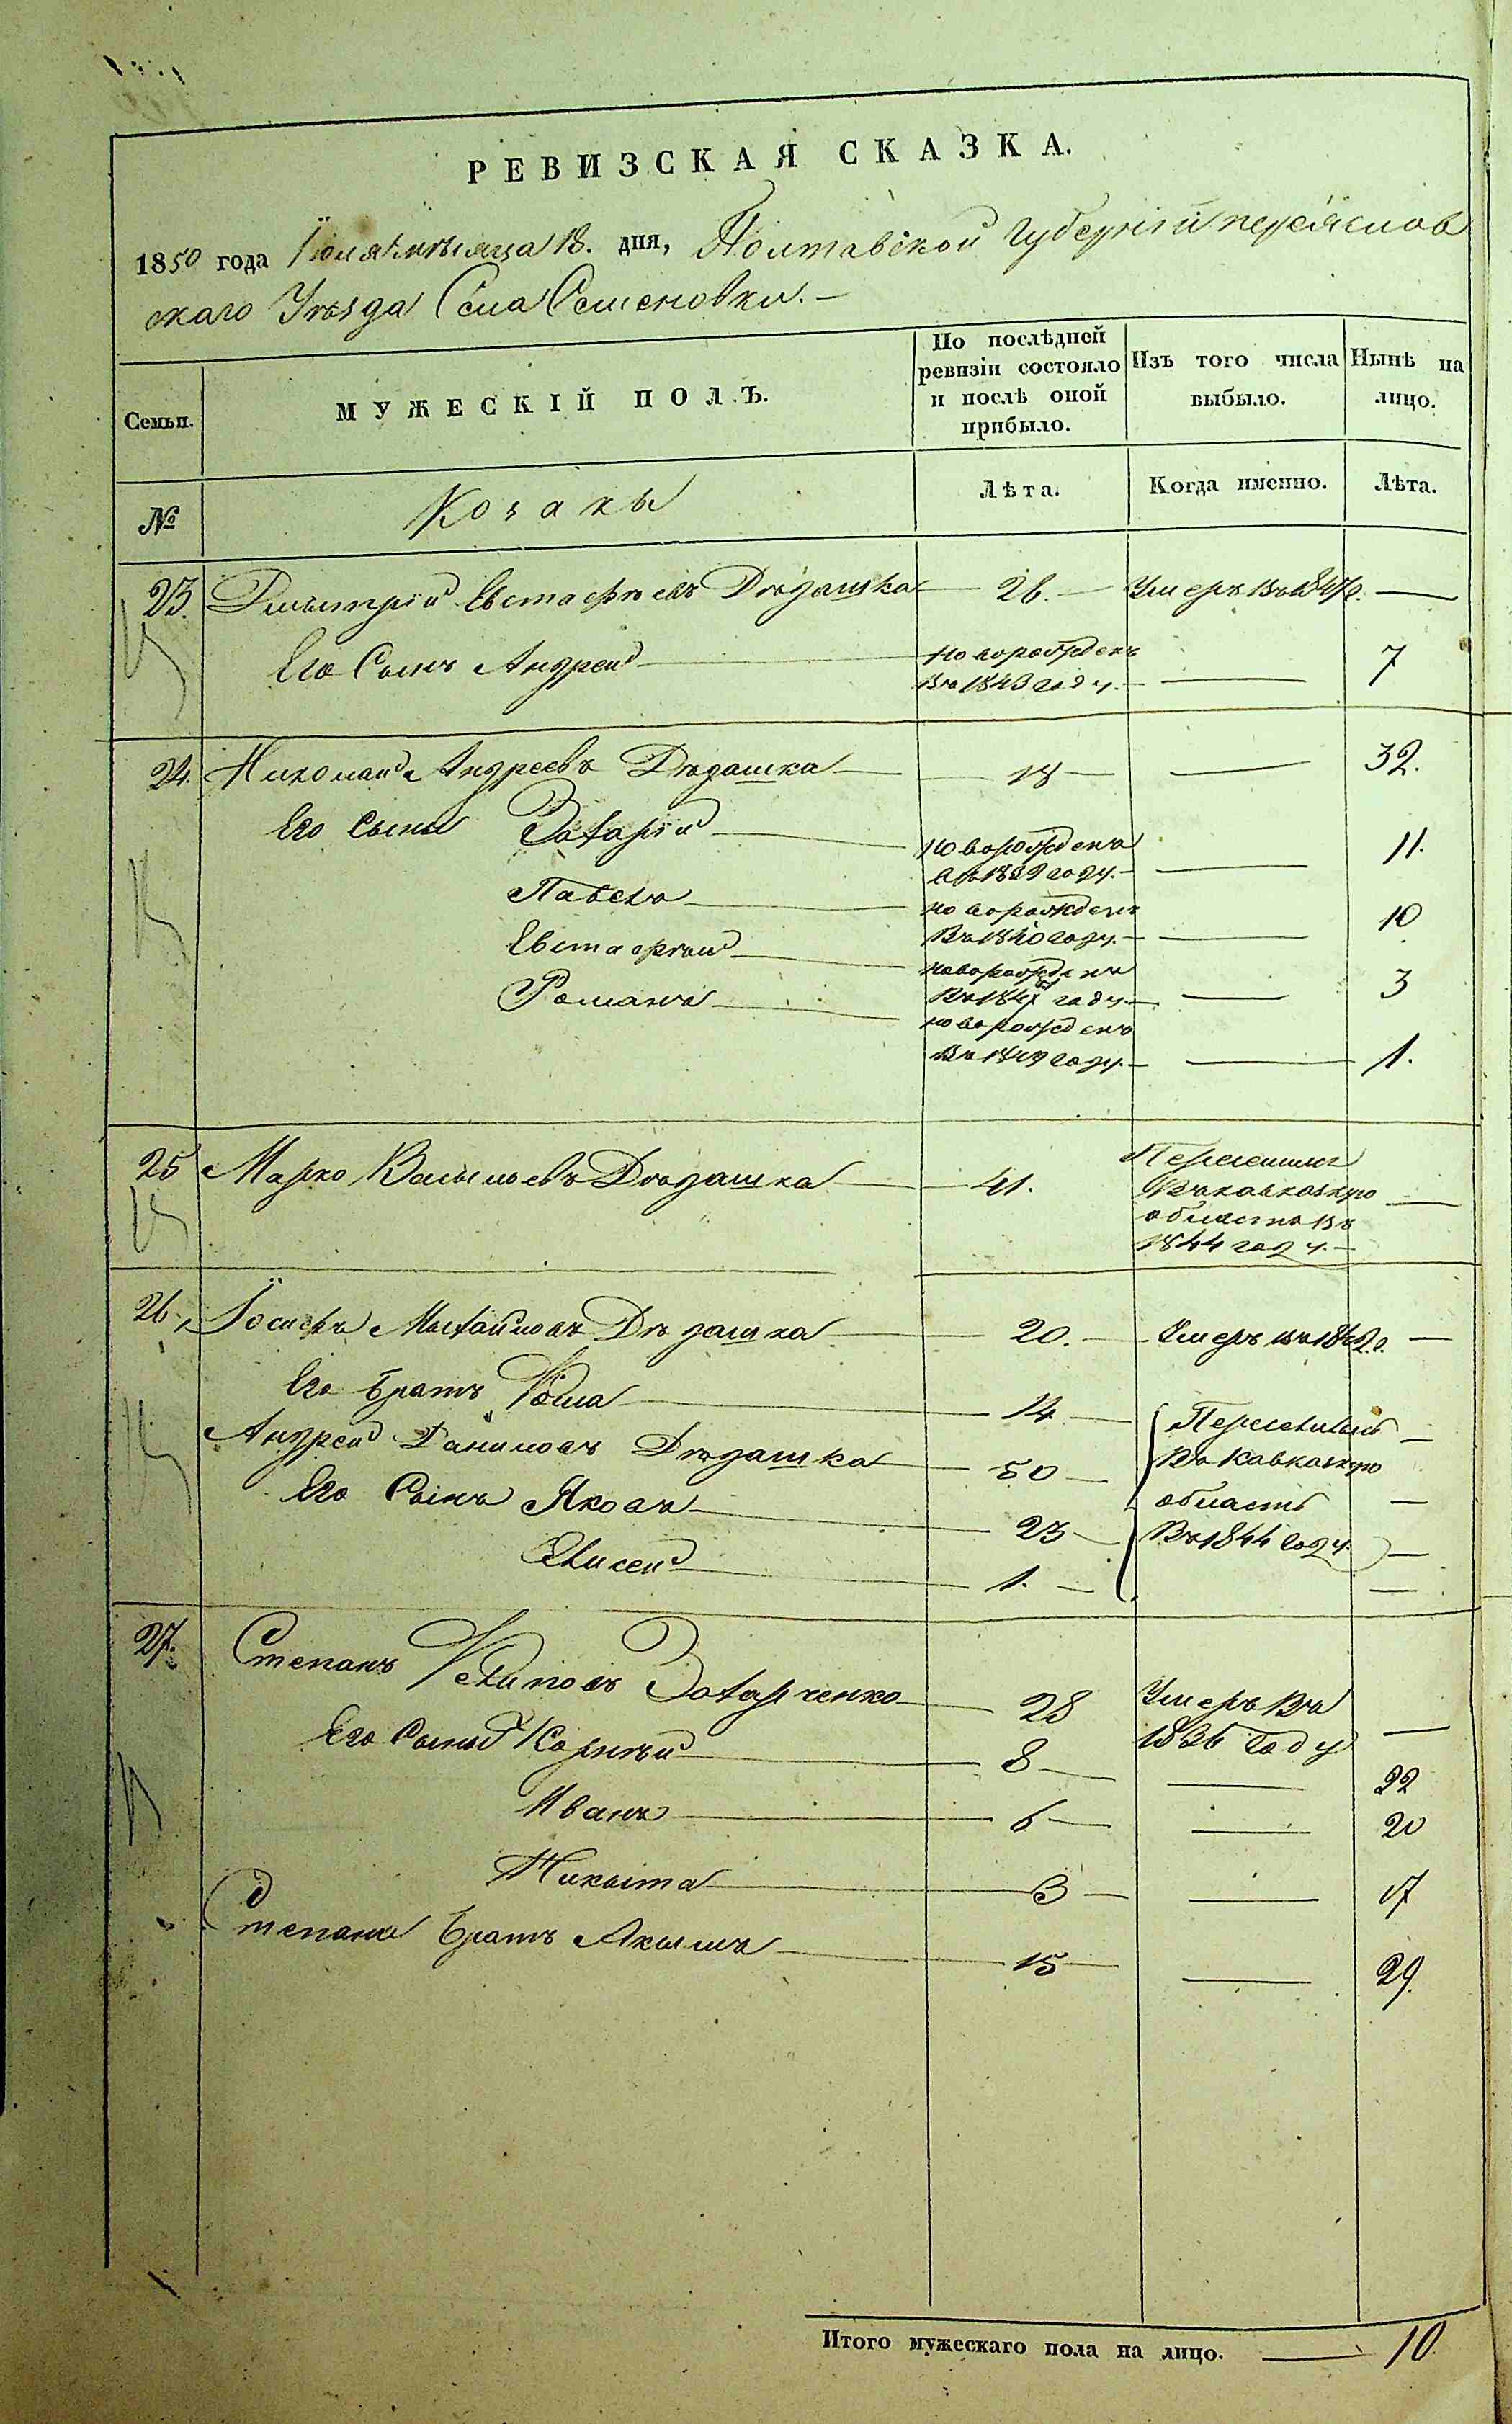 РЕВИЗСКАЯ СКАЗКА.
1850 года Іюля мѣсяца 18. дня, Полтавской Губерніи переяслов
скаго Уѣзда Села Семеновки.
Семьи.
МУЖЕСКІЙ ПОЛЪ.
По послѣдней ревизіи состояло и послѣ оной прибыло.
Изъ того числа выбыло.
Нынѣ на лицо.
№
Козаки
Лѣта.
Когда именно.
Лѣта.
23. Дмытрій Евстафѣевъ Дѣдашка 26. Умеръ въ 1847г.
Его Сынъ Андрей новорожденъ въ 1843 году. 7
24. Николай Андреевъ Дѣдашка 18 32.
Его Сыны Захарій новорожденъ въ 1839 году. 11.
Павелъ новорожденъ въ 1840 году. 10
Евстафѣй новорожденъ въ 1847 году 3
Романъ новорожденъ въ 1849 году. 1.
25 Марко Васыльевъ Дѣдашка 41. Переселился въ кавказкую область въ 1844 году.
26, Іосифъ Мыхайловъ Дѣдашка 20. Умеръ въ 1842г.
Его братъ Кома 14
Андрей Даниловъ Дѣдашка 50
Его Сынъ Яковъ 23
Елисей 1.
Переселились
въ Кавказкую
область
въ 1844 году.
27. Степанъ Филиповъ Захарченко 28 Умеръ въ 1836 году
Его Сыны Корнѣй 8 22
Иванъ 6 20
Никыта 3 17
Степана братъ Якымъ 15 29.
Итого мужескаго пола на лицо. 10